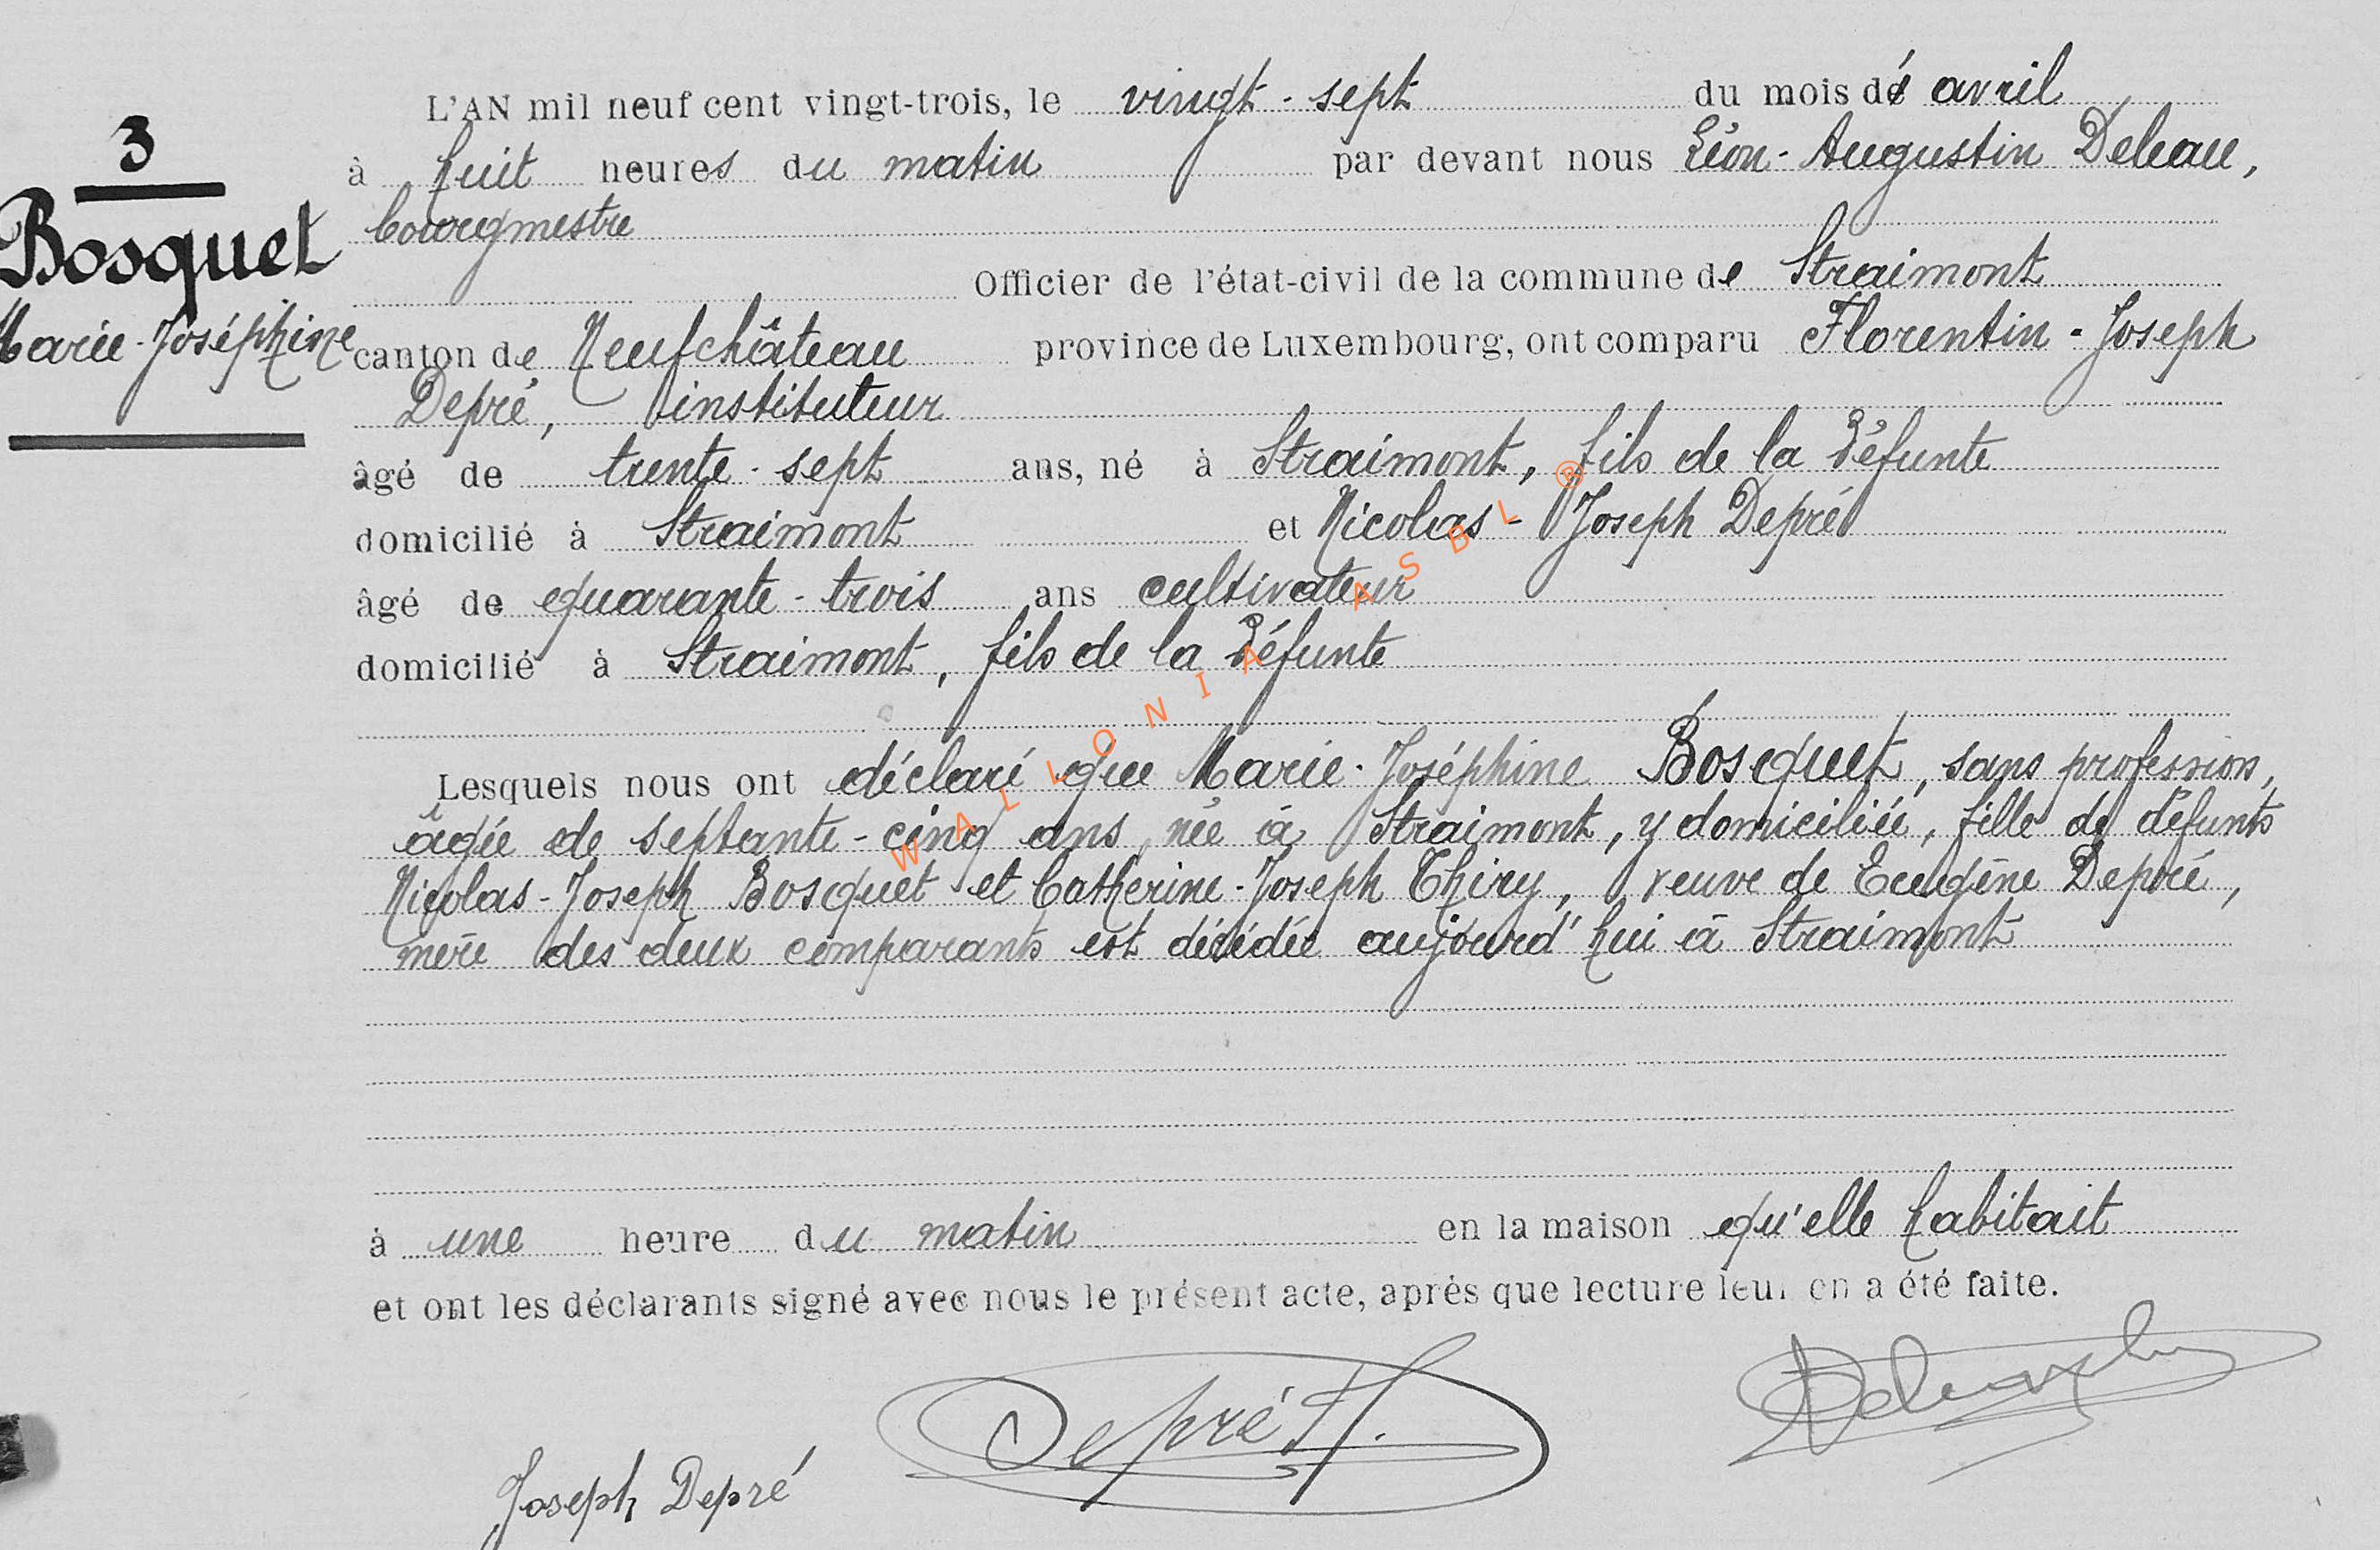 3
Bosquet
Marie-Joséphine
L'AN mil neuf cent vingt-trois, le vingt-sept du mois de avril
à huit heures du matin par devant nous Léon-Augustin Deleau,
bourgmestre
Officier de l'état-civil de la commune de Straimont
canton de Neufchâteau province de Luxembourg, ont comparu Florentin-Joseph
Depré, instituteur
âgé de trente-sept ans, né à Straimont, fils de la défunte
domicilié à Straimont et Nicolas-Joseph Depré
âgé de quarante-trois ans cultivateur
domicilié à Straimont, fils de la défunte
Lesquels nous ont déclaré que Marie-Joséphine Bosquet, sans profession,
âgée de septante-cinq ans, née à Straimont, y domiciliée, fille de défunts
Nicolas-Joseph Bosquet et Catherine-Joseph Thiry, veuve de Eugène Depré,
mère des deux comparants est décédée aujourd'hui à Straimont
à une heure du matin en la maison qu'elle habitait
et ont les déclarants signé avec nous le présent acte, après que lecture leur en a été faite.
Depré Fl.
Joseph Depré
WALLONIA ASBL ®